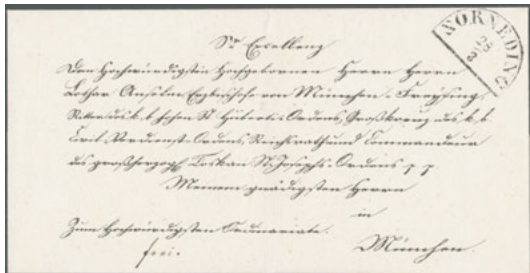 Sr Excellenz
Dem Hochwürdigsten Hochgebornen Herrn Herrn
Lothar Anselm Erzbischofe von München-Freysing,
Ritter des k. b. hohen St. Huberti-Ordens, Großkreuz des k. b.
Civil-Verdienst-Ordens, Reichsrath und Commandeur
des großherzogl. Toskan. St. Josephs-Ordens
Meinem gnädigsten Herrn
in
Zum Hochwürdigsten Ordinariate.
frei.
München.
ZORNEDING